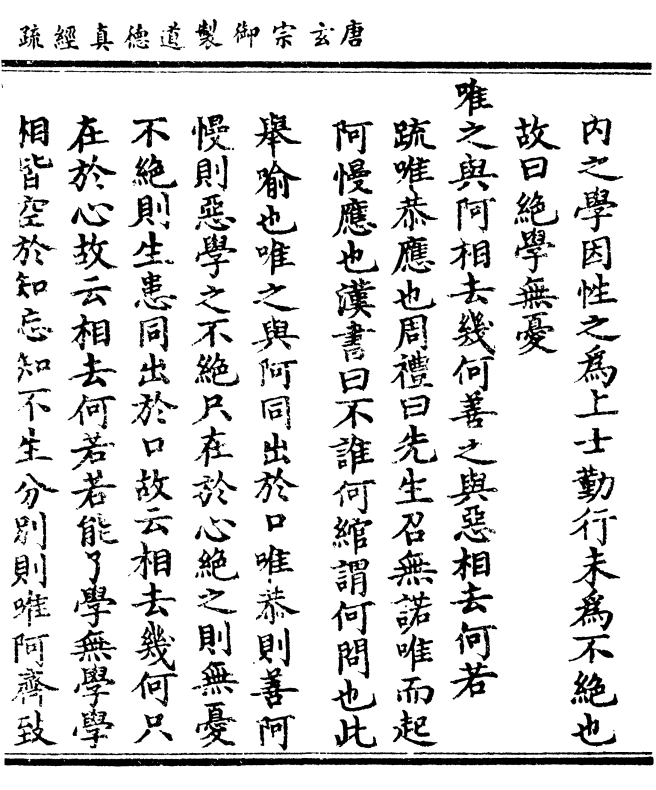 唐玄宗御製道德真經疏
内之學因性之爲上士勤行未爲不絶也
故曰絶學無憂
唯之與阿相去幾何善之與惡相去何若
疏唯恭應也周禮曰先生召無諾唯而起
阿慢應也漢書曰不誰何綰謂何問也此
舉喻也唯之與阿同出於口唯恭則善阿
慢則惡學之不絶只在於心絶之則無憂
不絶則生患同出於口故云相去幾何只
在於心故云相去何若若能了學無學學
相皆空於知忘知不生分别則唯阿齊致